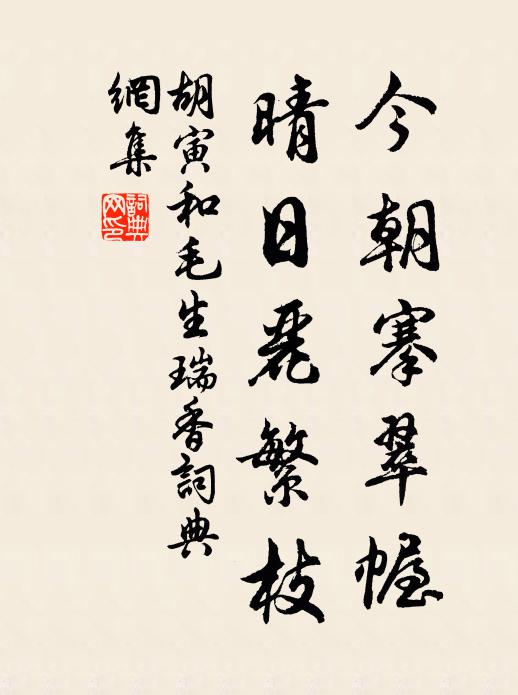 今朝搴翠幄
晴日麗繁枝
胡寅和毛生瑞香詞典
網集
詞典網印